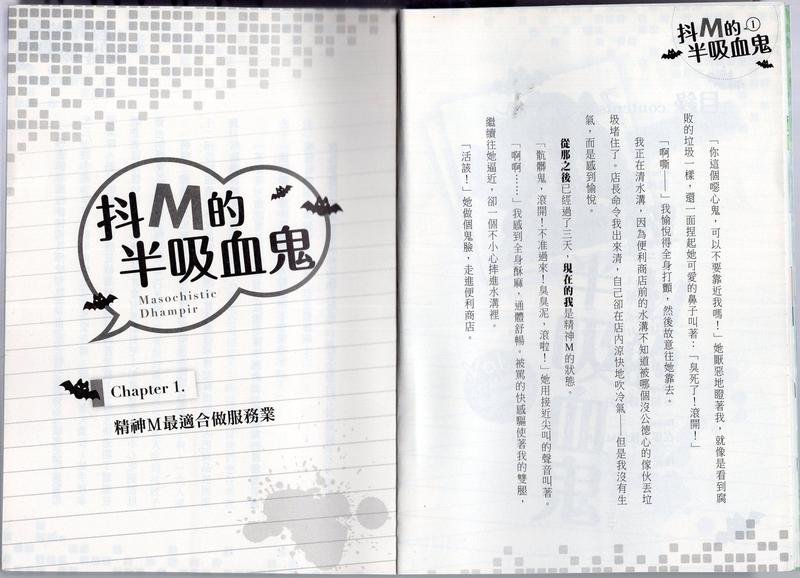 抖M的
半吸血鬼
Masochistic
Dhampir
Chapter 1.
精神M最適合做服務業
抖M的 1
半吸血鬼
「你這個噁心鬼，可以不要靠近我嗎！」她厭惡地瞪著我，就像是看到腐
敗的垃圾一樣，還一面捏起她可愛的鼻子叫著：「臭死了！滾開！」
「啊嘶——」我愉悅得全身打顫，然後故意往她靠去。
我正在清水溝，因為便利商店前的水溝不知道被哪個沒公德心的傢伙丟垃
圾堵住了。店長命令我出來清，自己卻在店內涼快地吹冷氣——但是我沒有生
氣，而是感到愉悅。
從那之後已經過了三天，現在的我是精神M的狀態。
「骯髒鬼，滾開！不准過來！臭臭泥，滾啦！」她用接近尖叫的聲音叫著。
「啊啊……」我感到全身酥麻，通體舒暢。被罵的快感驅使著我的雙腿，
繼續往她逼近，卻一個不小心摔進水溝裡。
「活該！」她做個鬼臉，走進便利商店。